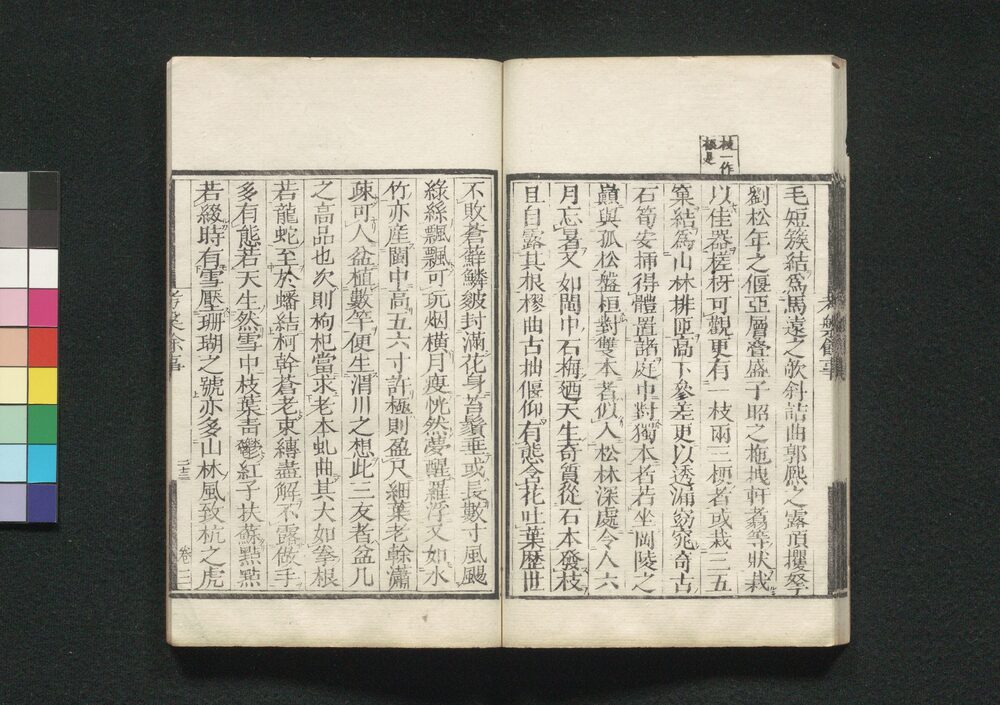 一作
毛短簇結爲馬遠之欹斜詰曲郭熙之露頂攫拏
劉松年之偃亞層疊盛子昭之拖拽軒翥等狀栽
以佳器槎枒可觀更有一枝兩三梗者或栽三五
窠結爲山林排匝高下參差更以透漏窈窕奇古
石筍安揷得體置諸庭中對獨本者若坐岡陵之
巔與孤松盤桓對雙本者似入松林深處令人六
月忘暑又如閩中石梅廼天生奇質從石本發枝
且自露其根樛曲古拙偃仰有態含花吐葉歷世
不敗蒼蘚鱗皴封滿花身苔鬚垂或長數寸風颺
綠絲飄飄可玩烟橫月瘦恍然夢醒羅浮又如水
竹亦産閩中高五六寸許極則盈尺細葉老幹瀟
疎可人盆植數竿便生渭川之想此三友者盆几
之高品也次則枸杞當求老本虬曲其大如拳根
若龍蛇至於蟠結柯幹蒼老束縛盡解不露做手
多有態若天生然雪中枝葉青鬱紅子扶蘇點點
若綴時有雪壓珊瑚之號亦多山林風致杭之虎